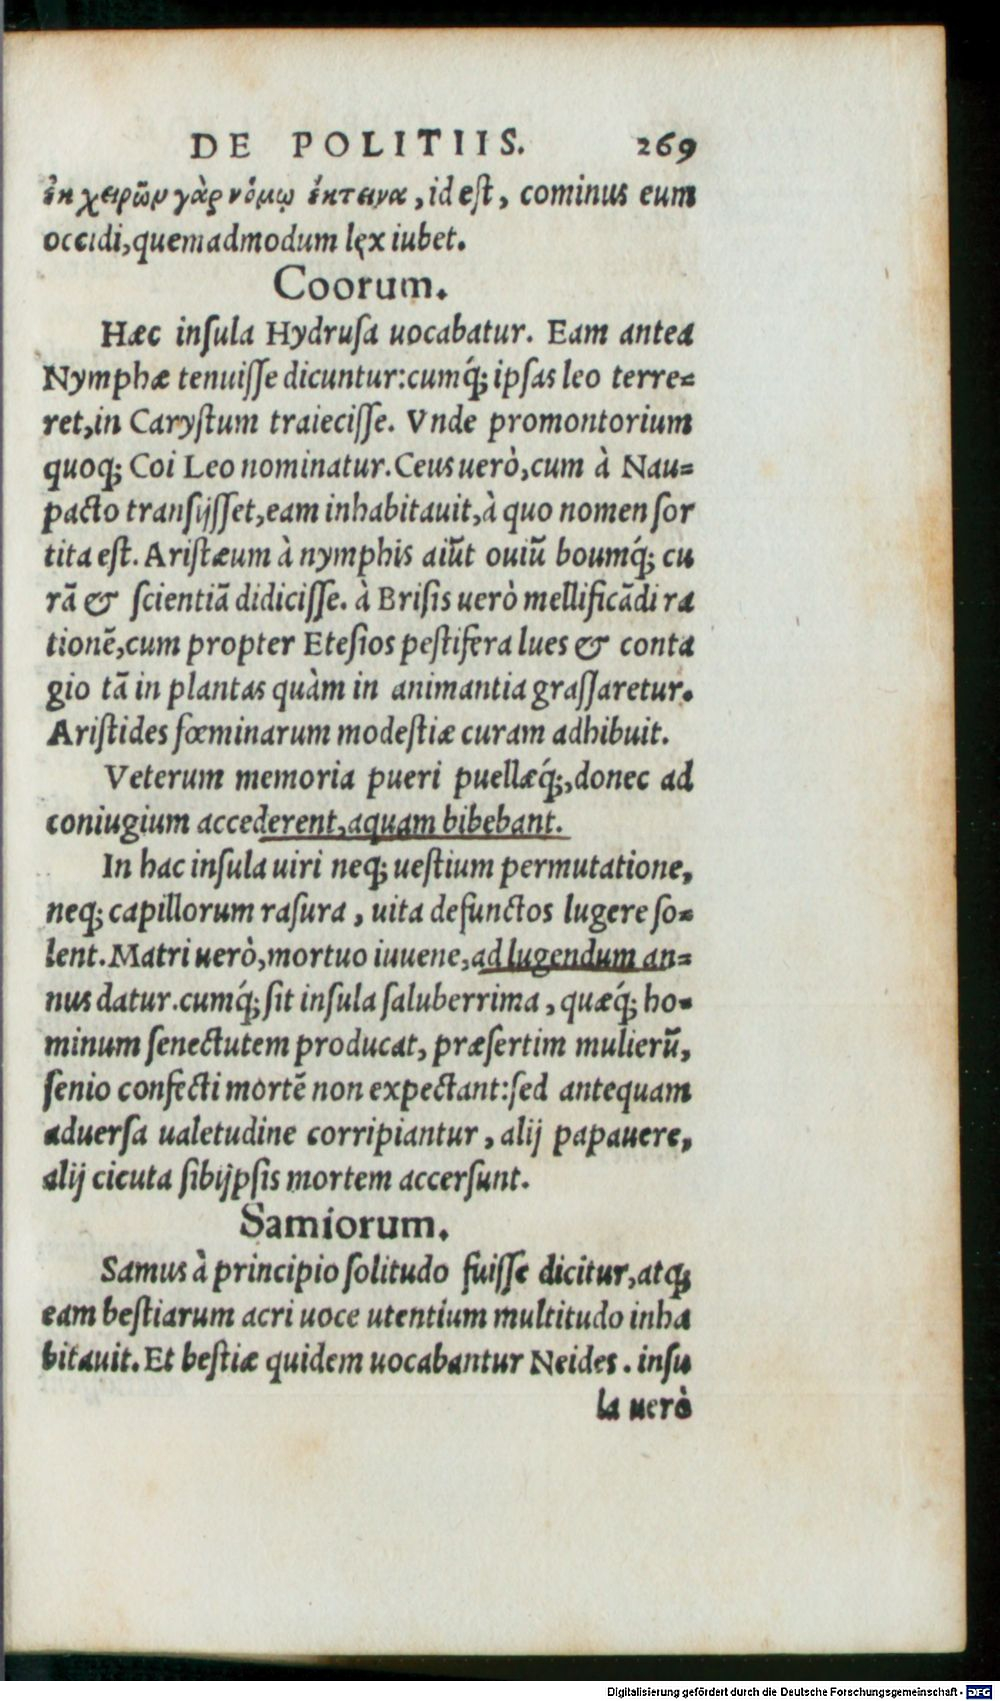 DE POLITIIS. 269
ἐκ χειρῶν γὰρ νόμῳ ἔκτεινα, id est, cominus eum
occidi, quemadmodum lęx iubet.
Coorum.
Hæc insula Hydrusa uocabatur. Eam antea
Nymphæ tenuisse dicuntur: cumq́; ipsas leo terre-
ret, in Carystum traiecisse. Vnde promontorium
quoq; Coi Leo nominatur. Ceus uerò, cum à Nau-
pacto transijsset, eam inhabitauit, à quo nomen sor
tita est. Aristæum à nymphis aiūt ouiū boumq́; cu
rā & scientiā didicisse. à Brisis uerò mellificādi ra
tionē, cum propter Etesios pestifera lues & conta
gio tā in plantas quàm in animantia grassaretur.
Aristides fœminarum modestiæ curam adhibuit.
Veterum memoria pueri puellæq́;, donec ad
coniugium accederent, aquam bibebant.
In hac insula uiri neq; uestium permutatione,
neq; capillorum rasura, uita defunctos lugere so-
lent. Matri uerò, mortuo iuuene, ad lugendum an-
nus datur. cumq́; sit insula saluberrima, quæq́; ho-
minum senectutem producat, præsertim mulierū,
senio confecti mortē non expectant: sed antequam
aduersa ualetudine corripiantur, alij papauere,
alij cicuta sibijpsis mortem accersunt.
Samiorum.
Samus à principio solitudo fuisse dicitur, atq;
eam bestiarum acri uoce utentium multitudo inha
bitauit. Et bestiæ quidem uocabantur Neides. insu
la uerò
Digitalisierung gefördert durch die Deutsche Forschungsgemeinschaft - DFG